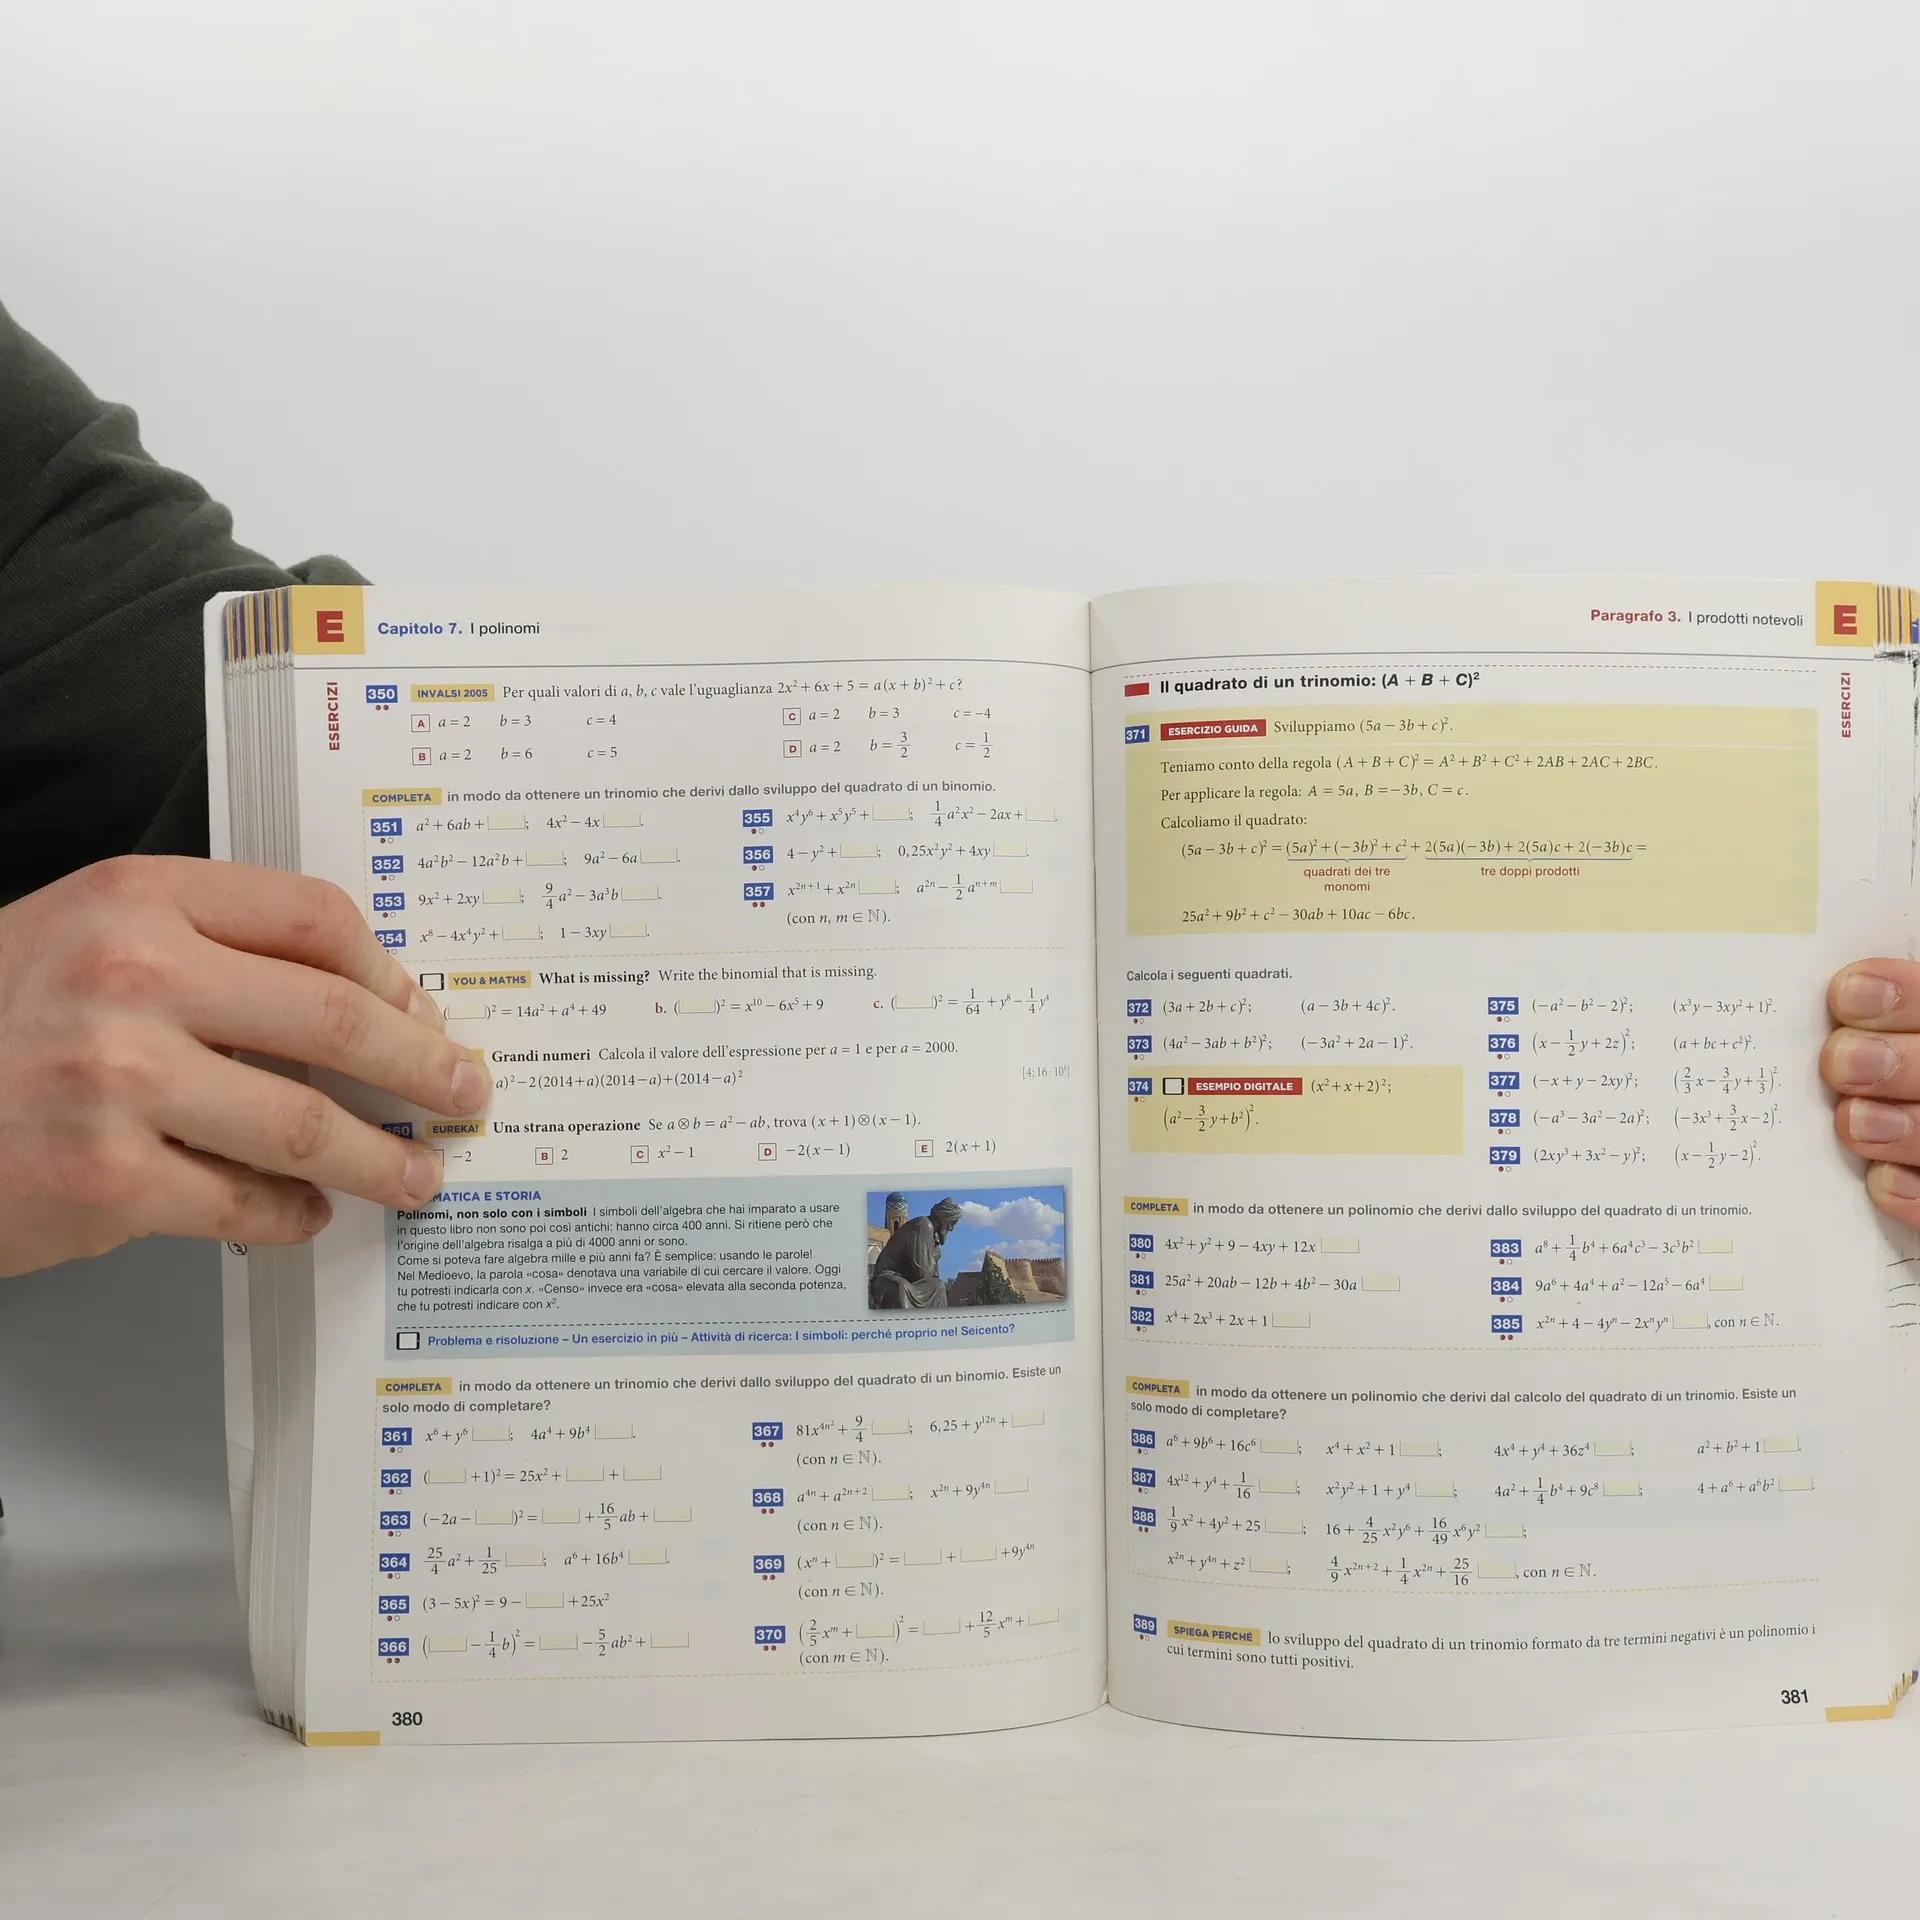 E
Capitolo 7. I polinomi
ESERCIZI
350 INVALSI 2005 Per quali valori di a, b, c vale l'uguaglianza 2x² + 6x + 5 = a(x + b)² + c?
A a = 2 b = 3 c = 4
C a = 2 b = 3 c = −4
B a = 2 b = 6 c = 5
D a = 2 b = 3/2 c = 1/2
COMPLETA in modo da ottenere un trinomio che derivi dallo sviluppo del quadrato di un binomio.
351 a² + 6ab + ; 4x² − 4x .
352 4a²b² − 12a²b + ; 9a² − 6a .
353 9x² + 2xy ; 9/4 a² − 3a³b .
354 x⁸ − 4x⁴y² + ; 1 − 3xy .
355 x⁴y⁶ + x⁵y⁵ + ; 1/4 a²x² − 2ax + .
356 4 − y² + ; 0,25x²y² + 4xy .
357 x²ⁿ⁺¹ + x²ⁿ ; a²ⁿ − 1/2 aⁿ⁺ᵐ
(con n, m ∈ ℕ).
YOU & MATHS What is missing? Write the binomial that is missing.
( )² = 14a² + a⁴ + 49 b. ( )² = x¹⁰ − 6x⁵ + 9 c. ( )² = 1/64 + y⁸ − 1/4 y⁴
Grandi numeri Calcola il valore dell'espressione per a = 1 e per a = 2000.
a)² − 2(2014 + a)(2014 − a) + (2014 − a)² [4; 16 · 10⁶]
EUREKA! Una strana operazione Se a ⊗ b = a² − ab, trova (x + 1) ⊗ (x − 1).
−2 B 2 C x² − 1 D −2(x − 1) E 2(x + 1)
MATICA E STORIA
Polinomi, non solo con i simboli I simboli dell'algebra che hai imparato a usare
in questo libro non sono poi così antichi: hanno circa 400 anni. Si ritiene però che
l'origine dell'algebra risalga a più di 4000 anni or sono.
Come si poteva fare algebra mille e più anni fa? È semplice: usando le parole!
Nel Medioevo, la parola «cosa» denotava una variabile di cui cercare il valore. Oggi
tu potresti indicarla con x. «Censo» invece era «cosa» elevata alla seconda potenza,
che tu potresti indicare con x².
Problema e risoluzione – Un esercizio in più – Attività di ricerca: I simboli: perché proprio nel Seicento?
COMPLETA in modo da ottenere un trinomio che derivi dallo sviluppo del quadrato di un binomio. Esiste un
solo modo di completare?
361 x⁶ + y⁶ ; 4a⁴ + 9b⁴ .
362 ( + 1)² = 25x² + +
363 (−2a − )² = + 16/5 ab +
364 25/4 a² + 1/25 ; a⁶ + 16b⁴ .
365 (3 − 5x)² = 9 − + 25x²
366 ( − 1/4 b)² = − 5/2 ab² +
367 81x^(4n²) + 9/4 ; 6,25 + y¹²ⁿ +
(con n ∈ ℕ).
368 a⁴ⁿ + a²ⁿ⁺² ; x²ⁿ + 9y⁴ⁿ
(con n ∈ ℕ).
369 (xⁿ + )² = + + 9y⁴ⁿ
(con n ∈ ℕ).
370 (2/5 xᵐ + )² = + 12/5 xᵐ +
(con m ∈ ℕ).
380
Paragrafo 3. I prodotti notevoli
E
ESERCIZI
Il quadrato di un trinomio: (A + B + C)²
371 ESERCIZIO GUIDA Sviluppiamo (5a − 3b + c)².
Teniamo conto della regola (A + B + C)² = A² + B² + C² + 2AB + 2AC + 2BC.
Per applicare la regola: A = 5a, B = −3b, C = c.
Calcoliamo il quadrato:
(5a − 3b + c)² = (5a)² + (−3b)² + c² + 2(5a)(−3b) + 2(5a)c + 2(−3b)c =
quadrati dei tre tre doppi prodotti
monomi
25a² + 9b² + c² − 30ab + 10ac − 6bc.
Calcola i seguenti quadrati.
372 (3a + 2b + c)²; (a − 3b + 4c)².
373 (4a² − 3ab + b²)²; (−3a² + 2a − 1)².
374 ESEMPIO DIGITALE (x² + x + 2)²;
(a² − 3/2 y + b²)².
375 (−a² − b² − 2)²; (x³y − 3xy² + 1)².
376 (x − 1/2 y + 2z)²; (a + bc + c²)².
377 (−x + y − 2xy)²; (2/3 x − 3/4 y + 1/3)².
378 (−a³ − 3a² − 2a)²; (−3x³ + 3/2 x − 2)².
379 (2xy³ + 3x² − y)²; (x − 1/2 y − 2)².
COMPLETA in modo da ottenere un polinomio che derivi dallo sviluppo del quadrato di un trinomio.
380 4x² + y² + 9 − 4xy + 12x
381 25a² + 20ab − 12b + 4b² − 30a
382 x⁴ + 2x³ + 2x + 1
383 a⁸ + 1/4 b⁴ + 6a⁴c³ − 3c³b²
384 9a⁶ + 4a⁴ + a² − 12a⁵ − 6a⁴
385 x²ⁿ + 4 − 4yⁿ − 2xⁿyⁿ , con n ∈ ℕ.
COMPLETA in modo da ottenere un polinomio che derivi dal calcolo del quadrato di un trinomio. Esiste un
solo modo di completare?
386 a⁶ + 9b⁶ + 16c⁶ ; x⁴ + x² + 1 ; 4x⁴ + y⁴ + 36z⁴ ; a² + b² + 1 .
387 4x¹² + y⁴ + 1/16 ; x²y² + 1 + y⁴ ; 4a² + 1/4 b⁴ + 9c⁸ ; 4 + a⁶ + a⁶b² .
388 1/9 x² + 4y² + 25 ; 16 + 4/25 x²y⁶ + 16/49 x⁶y² ;
x²ⁿ + y⁴ⁿ + z² ; 4/9 x²ⁿ⁺² + 1/4 x²ⁿ + 25/16 , con n ∈ ℕ.
389 SPIEGA PERCHÉ lo sviluppo del quadrato di un trinomio formato da tre termini negativi è un polinomio i
cui termini sono tutti positivi.
381